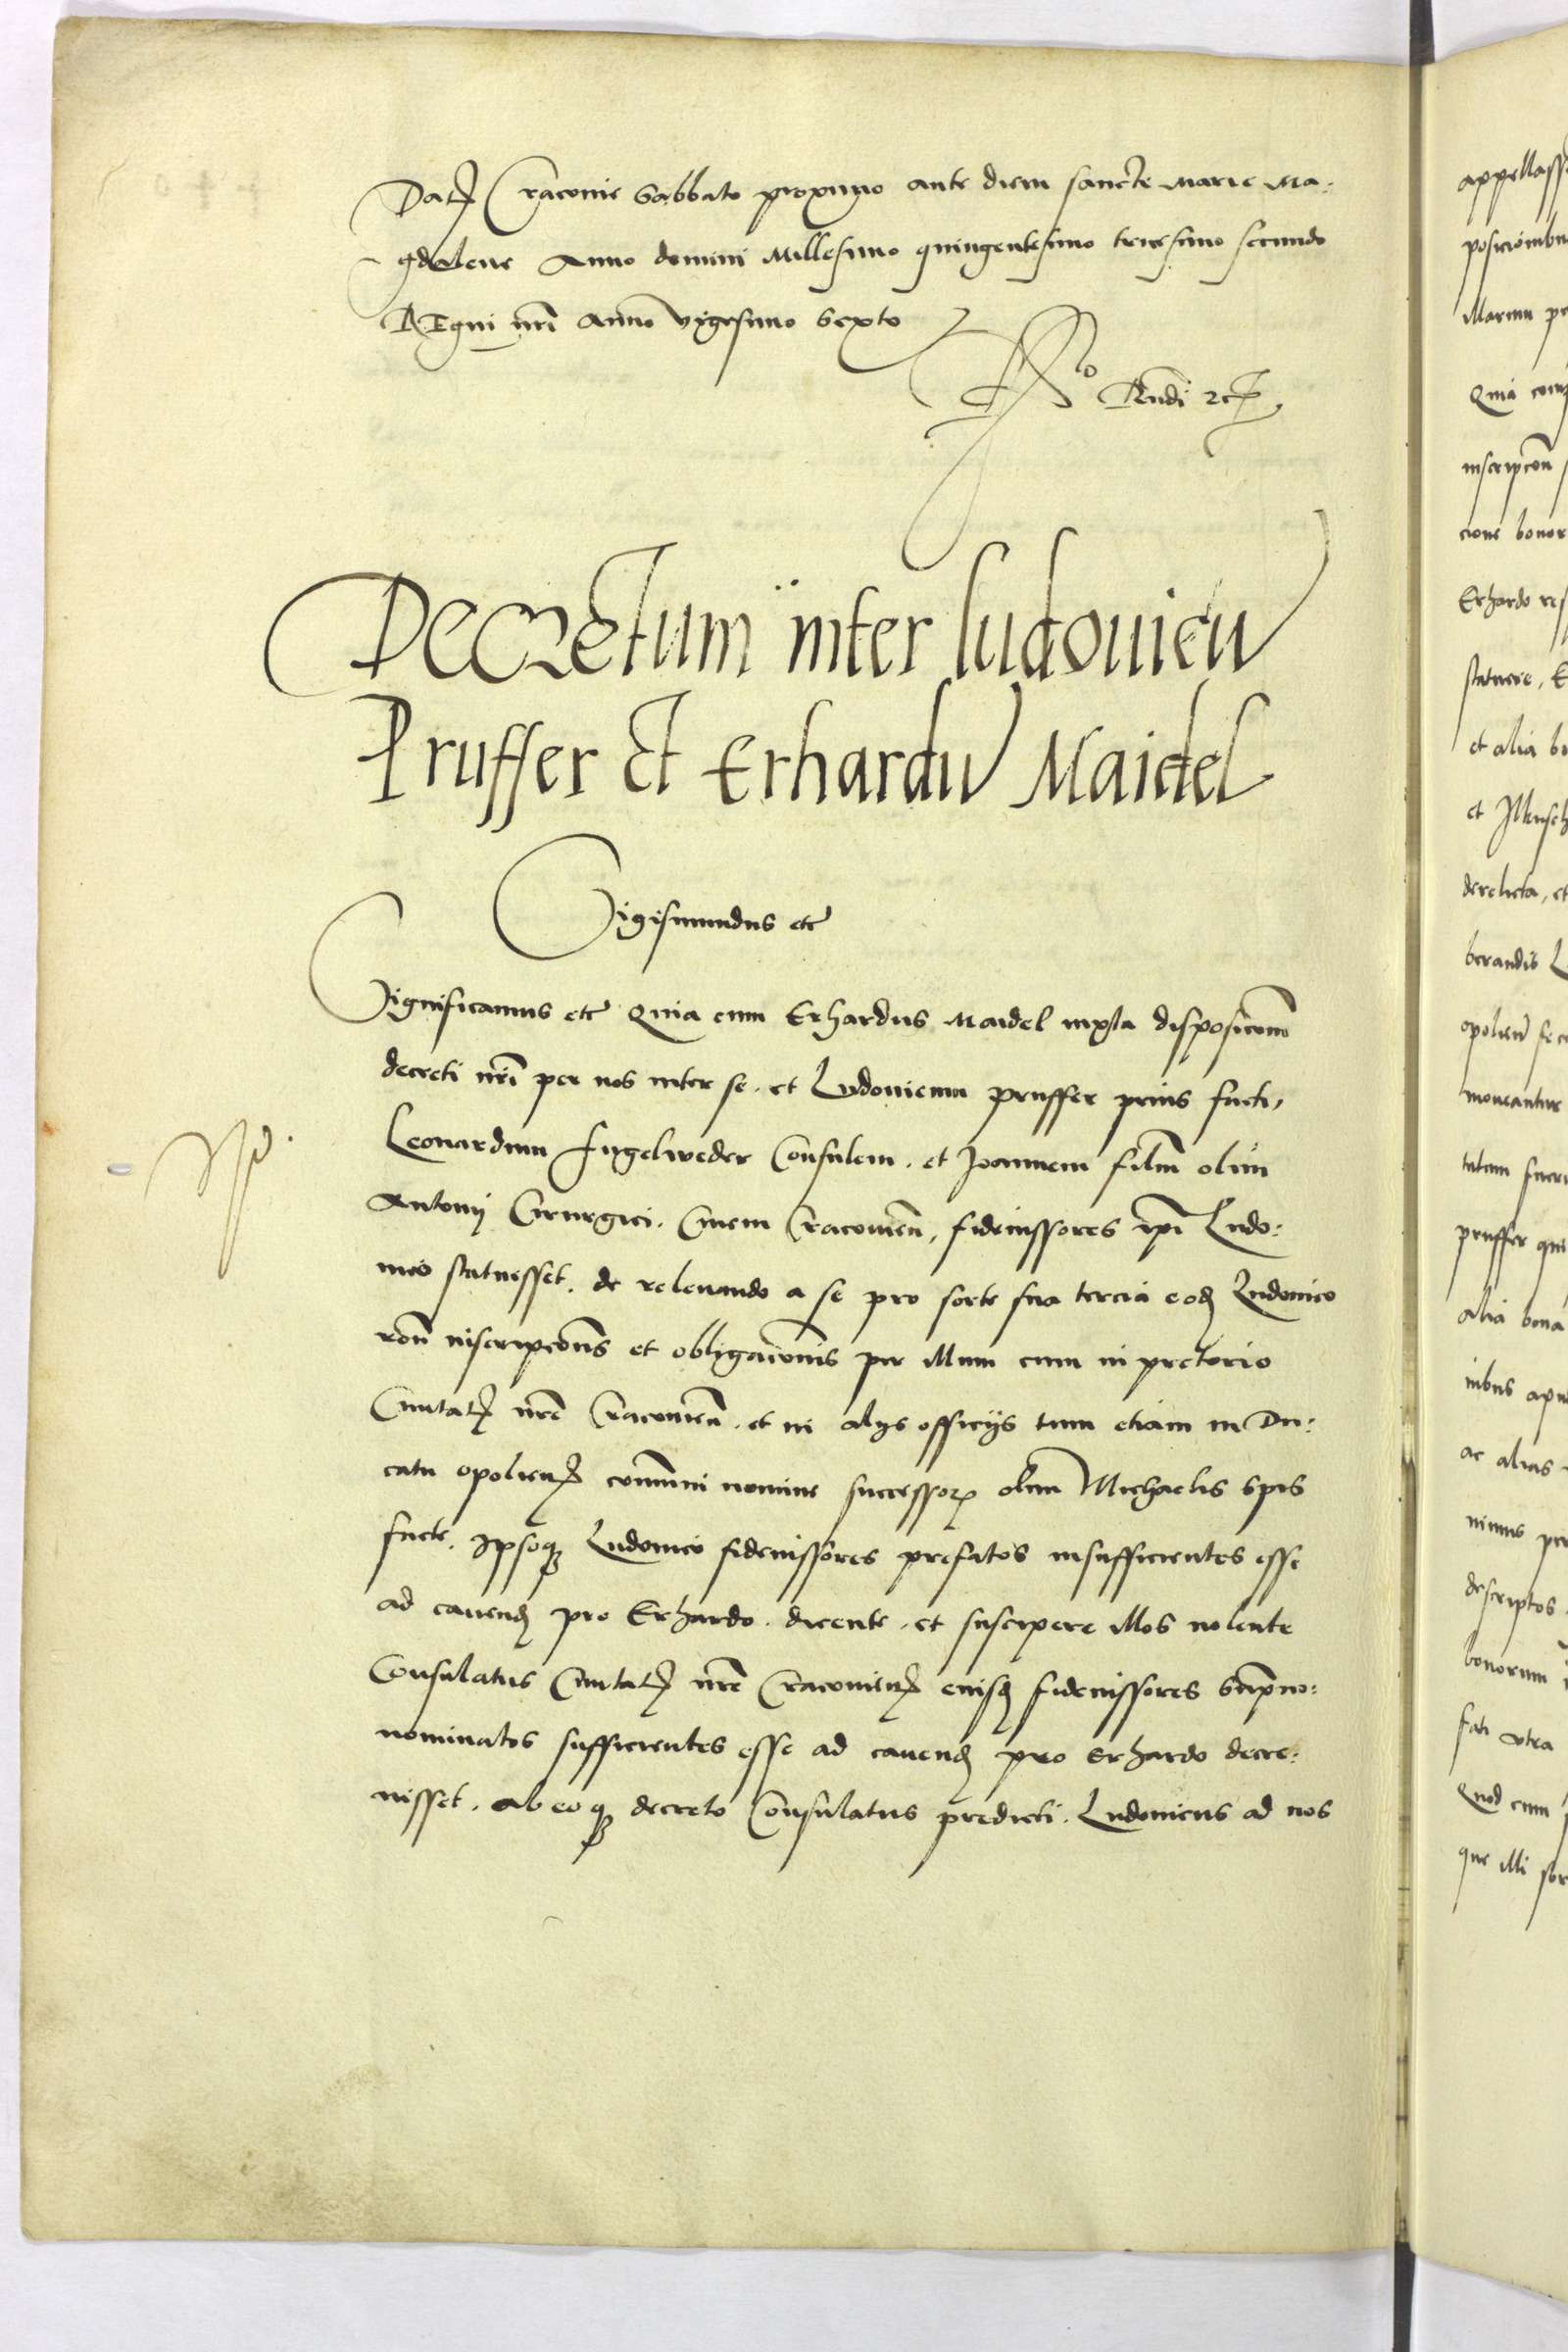 Datum Cracovie Sabbato proximo ante diem sancte Marie Ma:
gdalene Anno domini Millesimo quingentesimo tricesimo secundo
REgni nri Anno vigesimo Sexto
Rndi
Decretum inter ludouicu
Pruffer Et Erhardu Maidel
Sigismundus etc
Significamus etc Quia cum Erhardus Maidel iuxta disposicionem
decreti nri per nos inter se et Ludouicum pruffer prius facti,
Leonardum Fugelweder Consulem. et Joannem filium olim
Antonij Cirurgici. Ciuem Cracouien, fideiussores ipi Ludo:
uico statuesset. de releuando a se pro sorte sua tercia eod Ludouico
ron inscripcionis et obligacionis per illum cum in pretorio
Ciuitatis nre Cracouien. et in alijs officijs tum etiam in Du:
catu opolien communi nomine successorum olim Michaelis Spis
facte. Ipsoque Ludouico fideiussores prefatos insufficientes esse
ad cauend pro Erhardo. dicente. et suscipere illos nolente
Consulatus Ciuitatis nre Cracouien eiusd fideiussores supno:
nominatos sufficientes esse ad cauend pro Erhardo decre:
uisset. ab eoque decreto Consulatus predicti. Ludouicus ad nos
appellass
illarum
Quia
cione bonor
Erhardo res
statuere, E
et alia bo
derelicta, et
berandis
moueantur
tatem fuer
pruffer qui
alia bona
ac alias
descriptos
bonorum
Quod cum
que illi sor